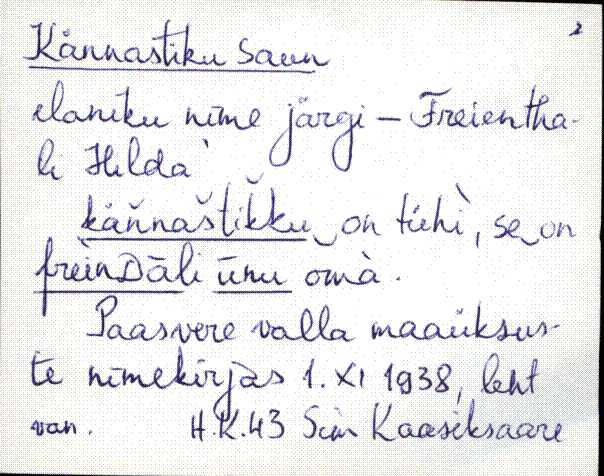 2
Kännastiku saun
elaniku nime järgi – Freientha-
li Hilda
käňnaštik̆ku‿on tühì, se‿on
frèinDāli ūnu omà.
Paasvere valla maaüksus-
te nimekirjas 1. XI 1938, leht
van. H.K.43 Sim Kaasiksaare